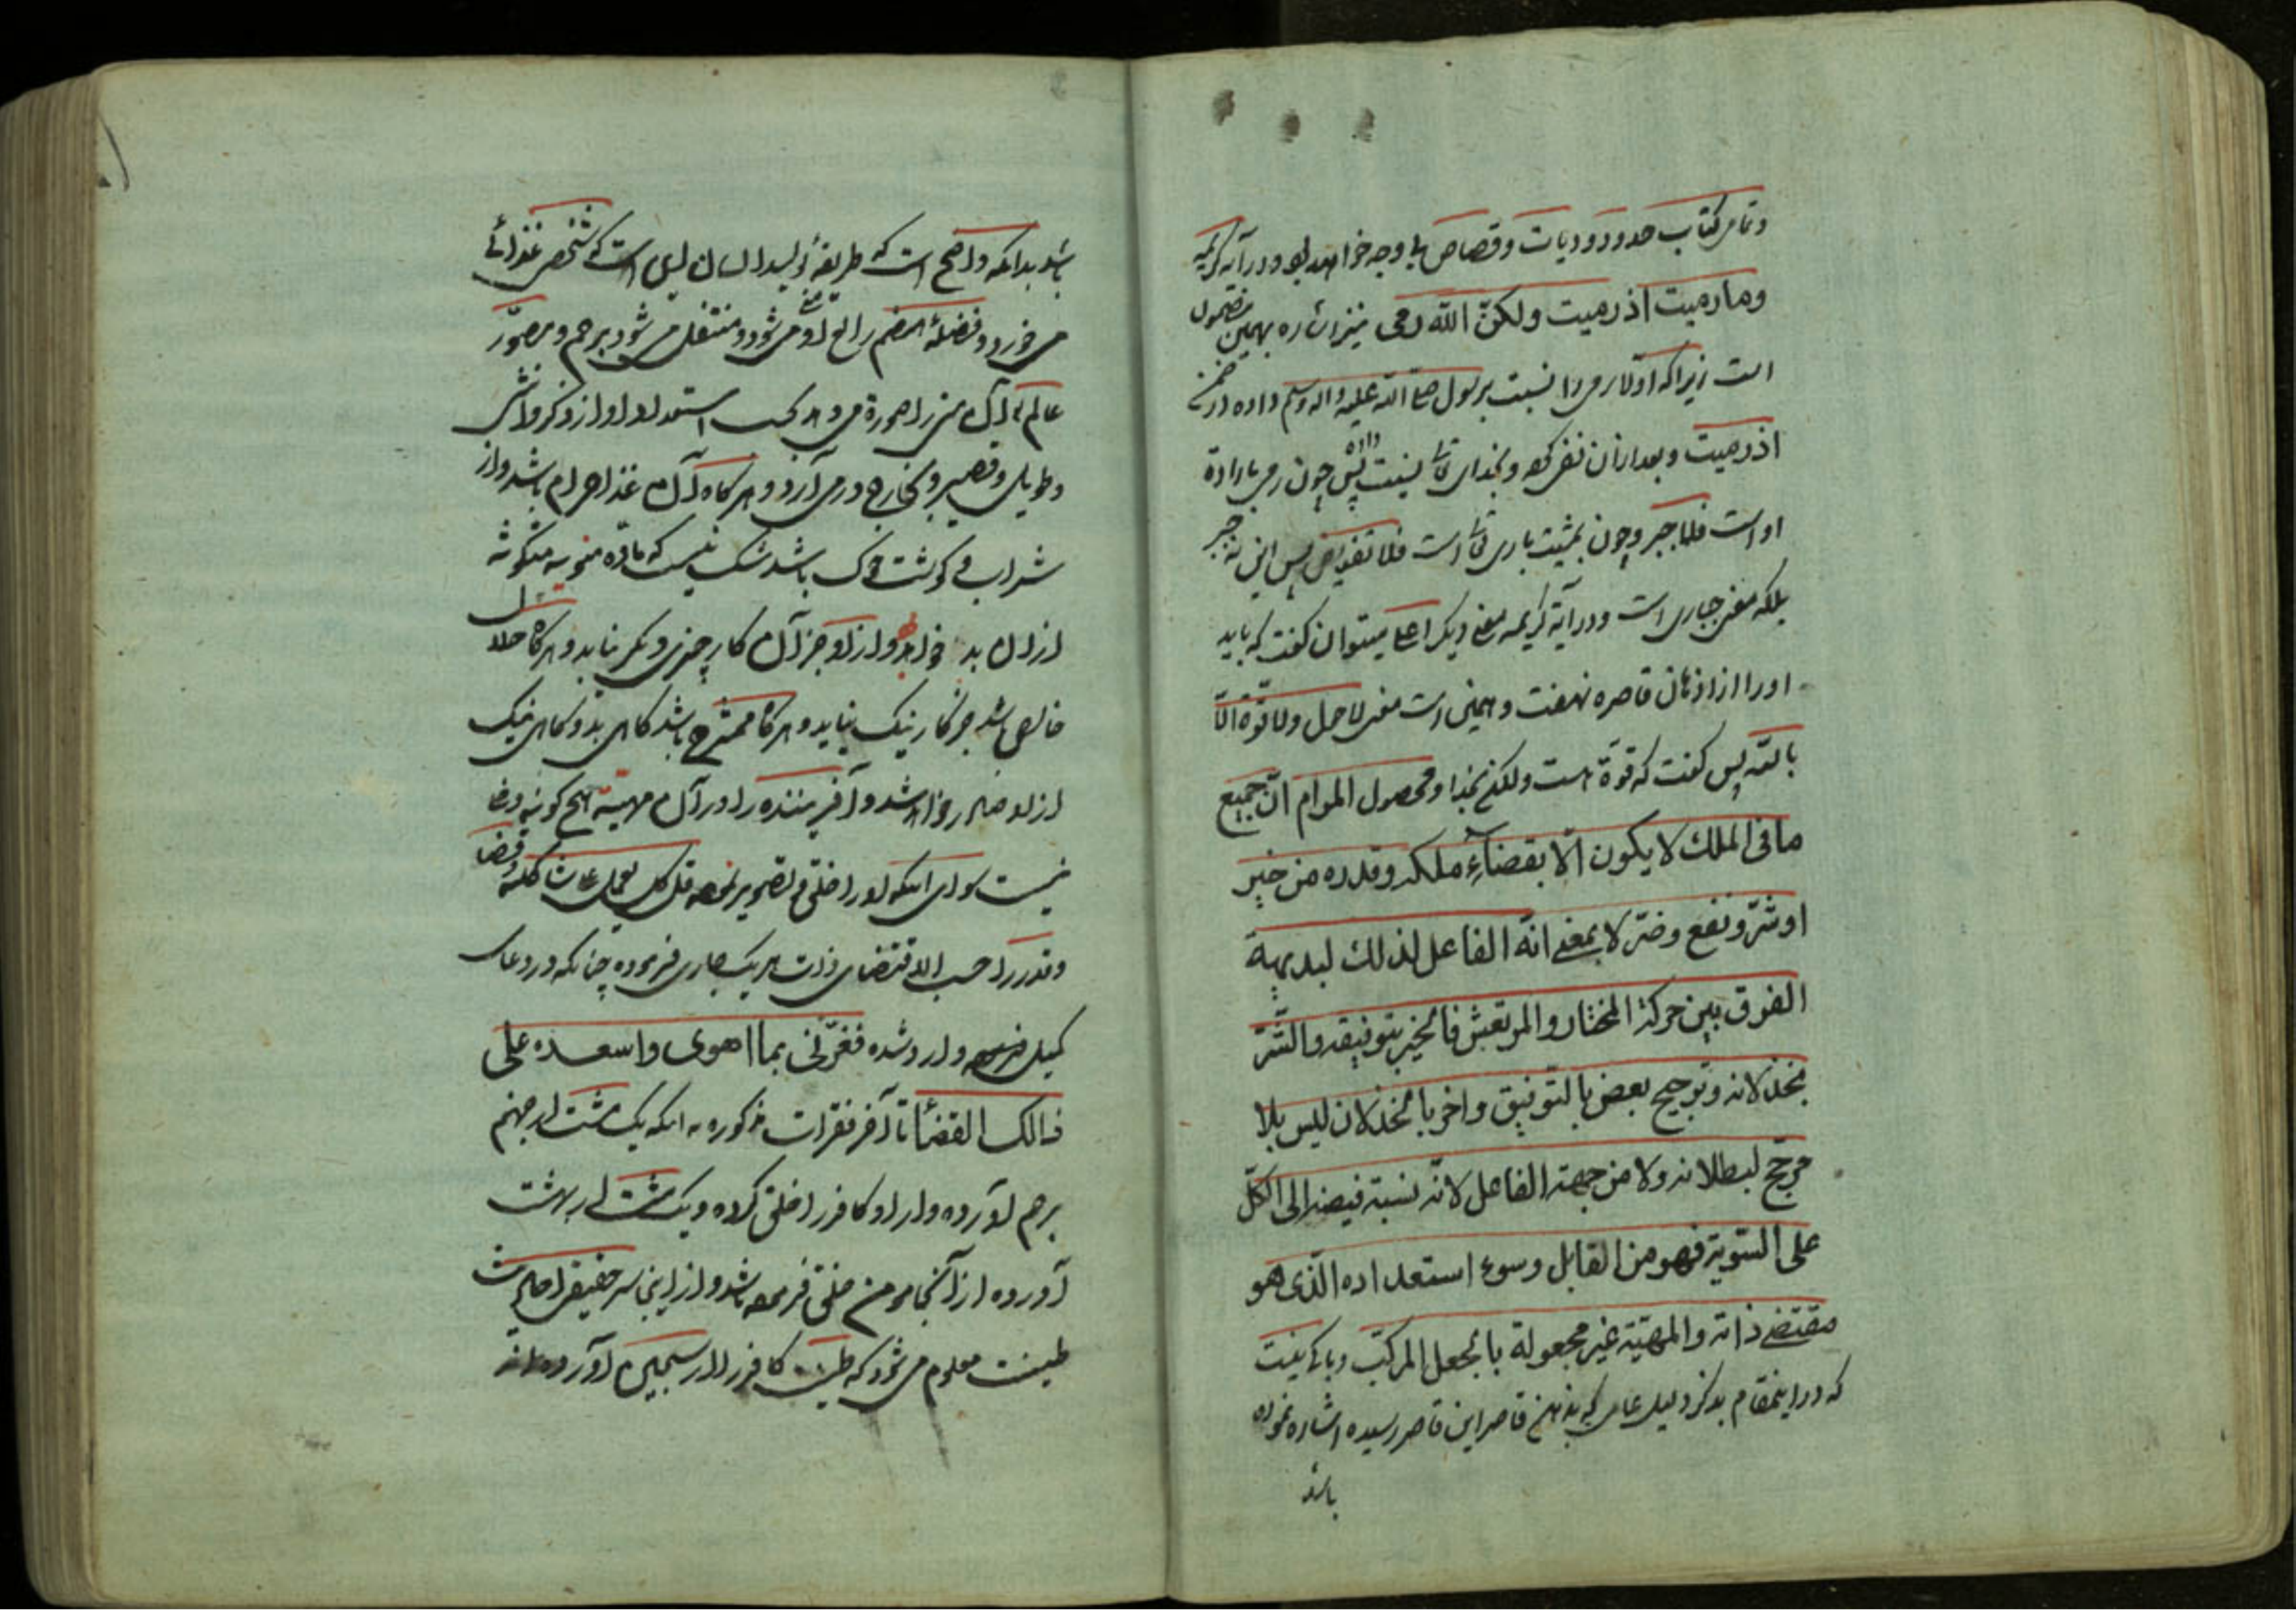 و تمامی کتاب حدود و دیات و قصاص بلا وجه خواهد بود و در آیه کریمه
وما رمیت اذ رمیت ولکنّ اللّه رمی نیز اشاره بهمین مضمون
است زیرا که اولا رمی را نسبت برسول صلی الله علیه واله وسلم داده در ضمن
اذ رمیت و بعد از آن نفی کرده و بخدای تعالی نسبت داده پس چون رمی باراده
او است فلا جبر و چون بمشیت باری تعالی است فلا تفویض پس این نه جبر
بلکه معنی جباری است و در آیه کریمه معنی دیگر اعلی میتوان گفت که باید
او را از اذهان قاصره نهفت و همین است معنی لا حول ولا قوّة الّا
باللّه پس گفت که قوّة هست ولکن بخدا ومحصول المرام انّ جمیع
ما فی الملک لا یکون الّا بقضآءِ ملکه وقدره من خیر
او شرّ ونفع وضرّ لا بمعنی انّه الفاعل لذلک لبدیهة
الفرق بین حرکة المختار والمرتعش فالخیر بتوفیقه والشّرّ
بخذلانه وترجیح بعض بالتّوفیق واخر بالخذلان لیس بلا
مرجّح لبطلانه ولا من جهة الفاعل لانّه نسبة فیضه الی الکلّ
علی السّویة فهو من القابل وسوء استعداده الّذی هو
مقتضی ذاته والمهیّة غیر مجعولة بالجعل المرکّب و باکی نیست
که در اینمقام بذکر دلیل عامی که بذهن قاصر این قاصر رسیده اشاره نموده
باشد
باشد بدانکه واضح است که طریقهٔ تولید انسان این است که شخص غذائی
می خورد و فضلهٔ هضم رابع او منی می شود و منتقل می شود برحم و مصوّر
عالم آن منی را صورة می دهد بحسب استعداد او از ذکر و انثی
و طویل و قصیر و بخارج در می آرد و هر گاه آن غذا حرام باشد و از
شراب و گوشت خوک باشد شک نیست که ماده منویه متکونه
از ان بد خواهد و از او جز آن کار چیزی دیگر نیاید و هر گاه حلال
خالص باشد جز کار نیک نیاید و هر گاه ممتزج باشد گاهی بد و گاهی نیک
از او صادر خواهد شد و آفریننده را در آن مهیّة هیچ گونه دخلی
نیست سوای اینکه او را خلق و تصویر نموده قل کل یعمل علی شاکلته و قضا
و قدر را حسب الاقتضای ذات هر یک جاری فرموده چنانکه در دعای
کمیل وارد شده فغرّنی بما اهوی واسعده علی
ذالک القضآء تا آخر فقرات مذکوره نه اینکه یک مشت از جهنم
برهم آورده و از او کافر را خلق کرده و یک مشت از بهشت
آورده از آنجا مومن خلق فرموده باشد و از اینجا سر حقیقی احادیث
طینت معلوم می شود که طینت کافر را از سجین آورده اند